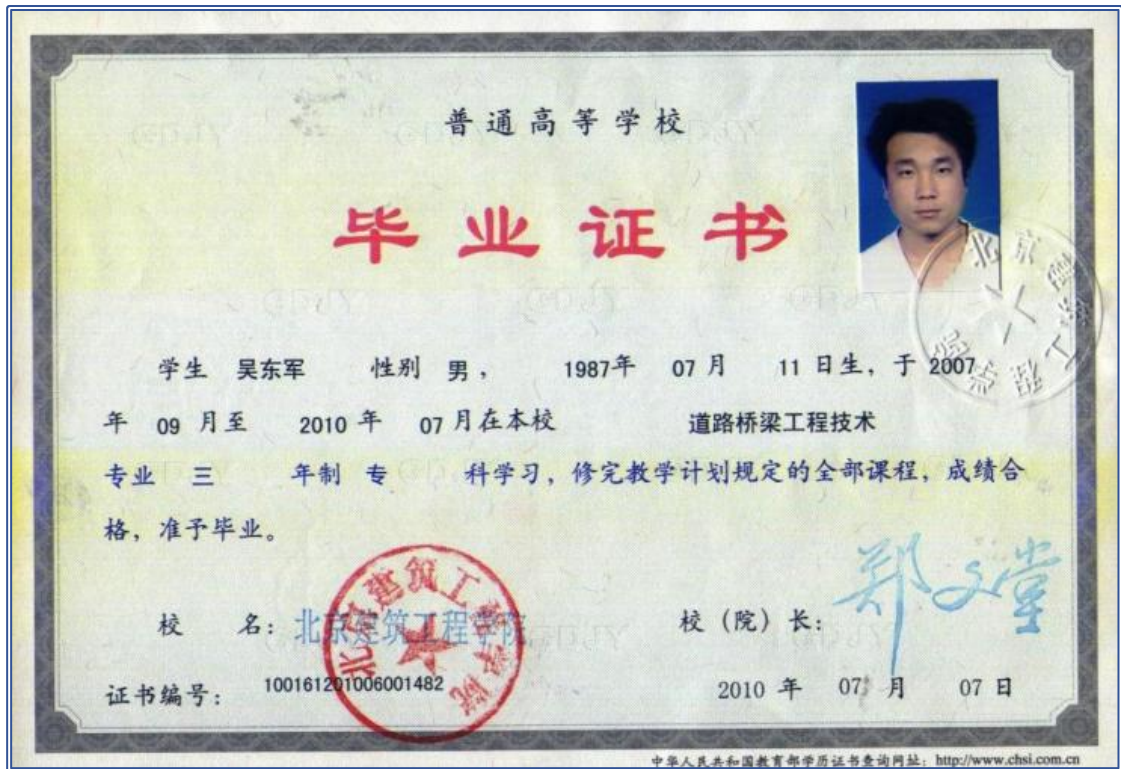 普通高等学校
毕业证书
学生 吴东军 性别 男， 1987年 07月 11日生，于 2007
年 09月至 2010年 07月在本校 道路桥梁工程技术
专业 三 年制 专 科学习，修完教学计划规定的全部课程，成绩合
格，准予毕业。
校 名：北京建筑工程学院
校（院）长：郑文堂
证书编号：100161201006001482
2010 年 07 月 07 日
北京建筑工程学院
中华人民共和国教育部学历证书查询网址：http://www.chsi.com.cn